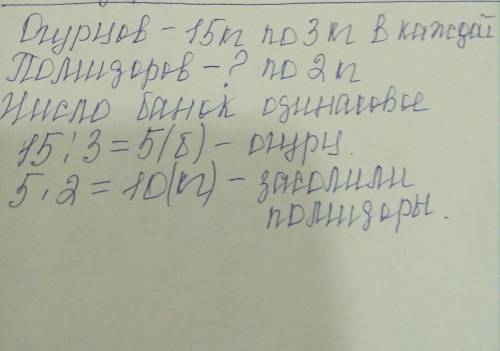 Огурцов - 15кг по 3 кг в каждой
Помидоров - ? по 2 кг
Число банок одинаковое
15 : 3 = 5(б) - огурц.
5 . 2 = 10(кг) - засолили
помидоры.